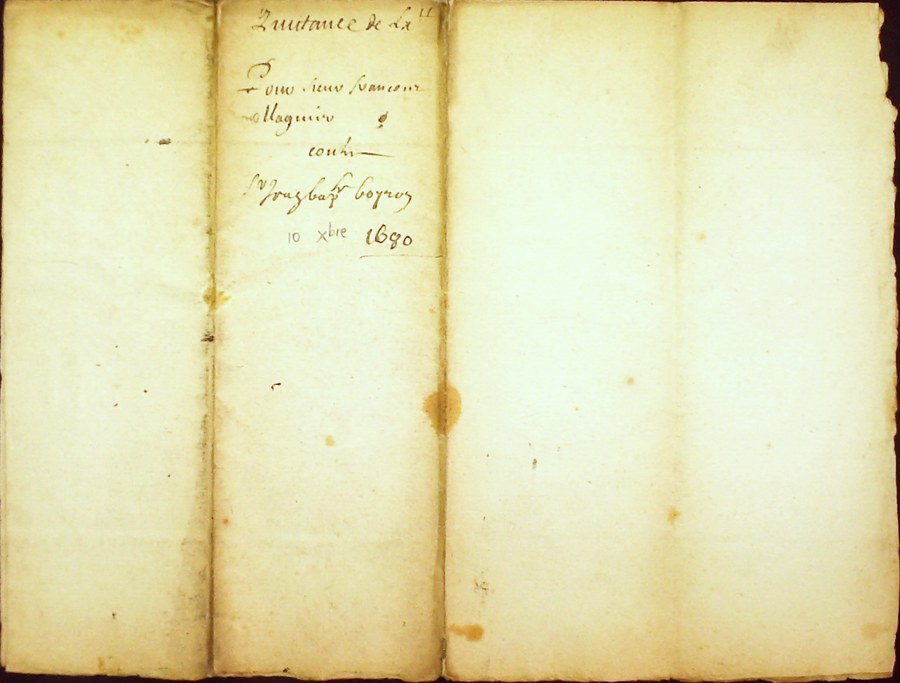 Quittance de La
Pour sieur francour
Magnier
contre
Sr Jean bapte boyron
10 Xbre 1680